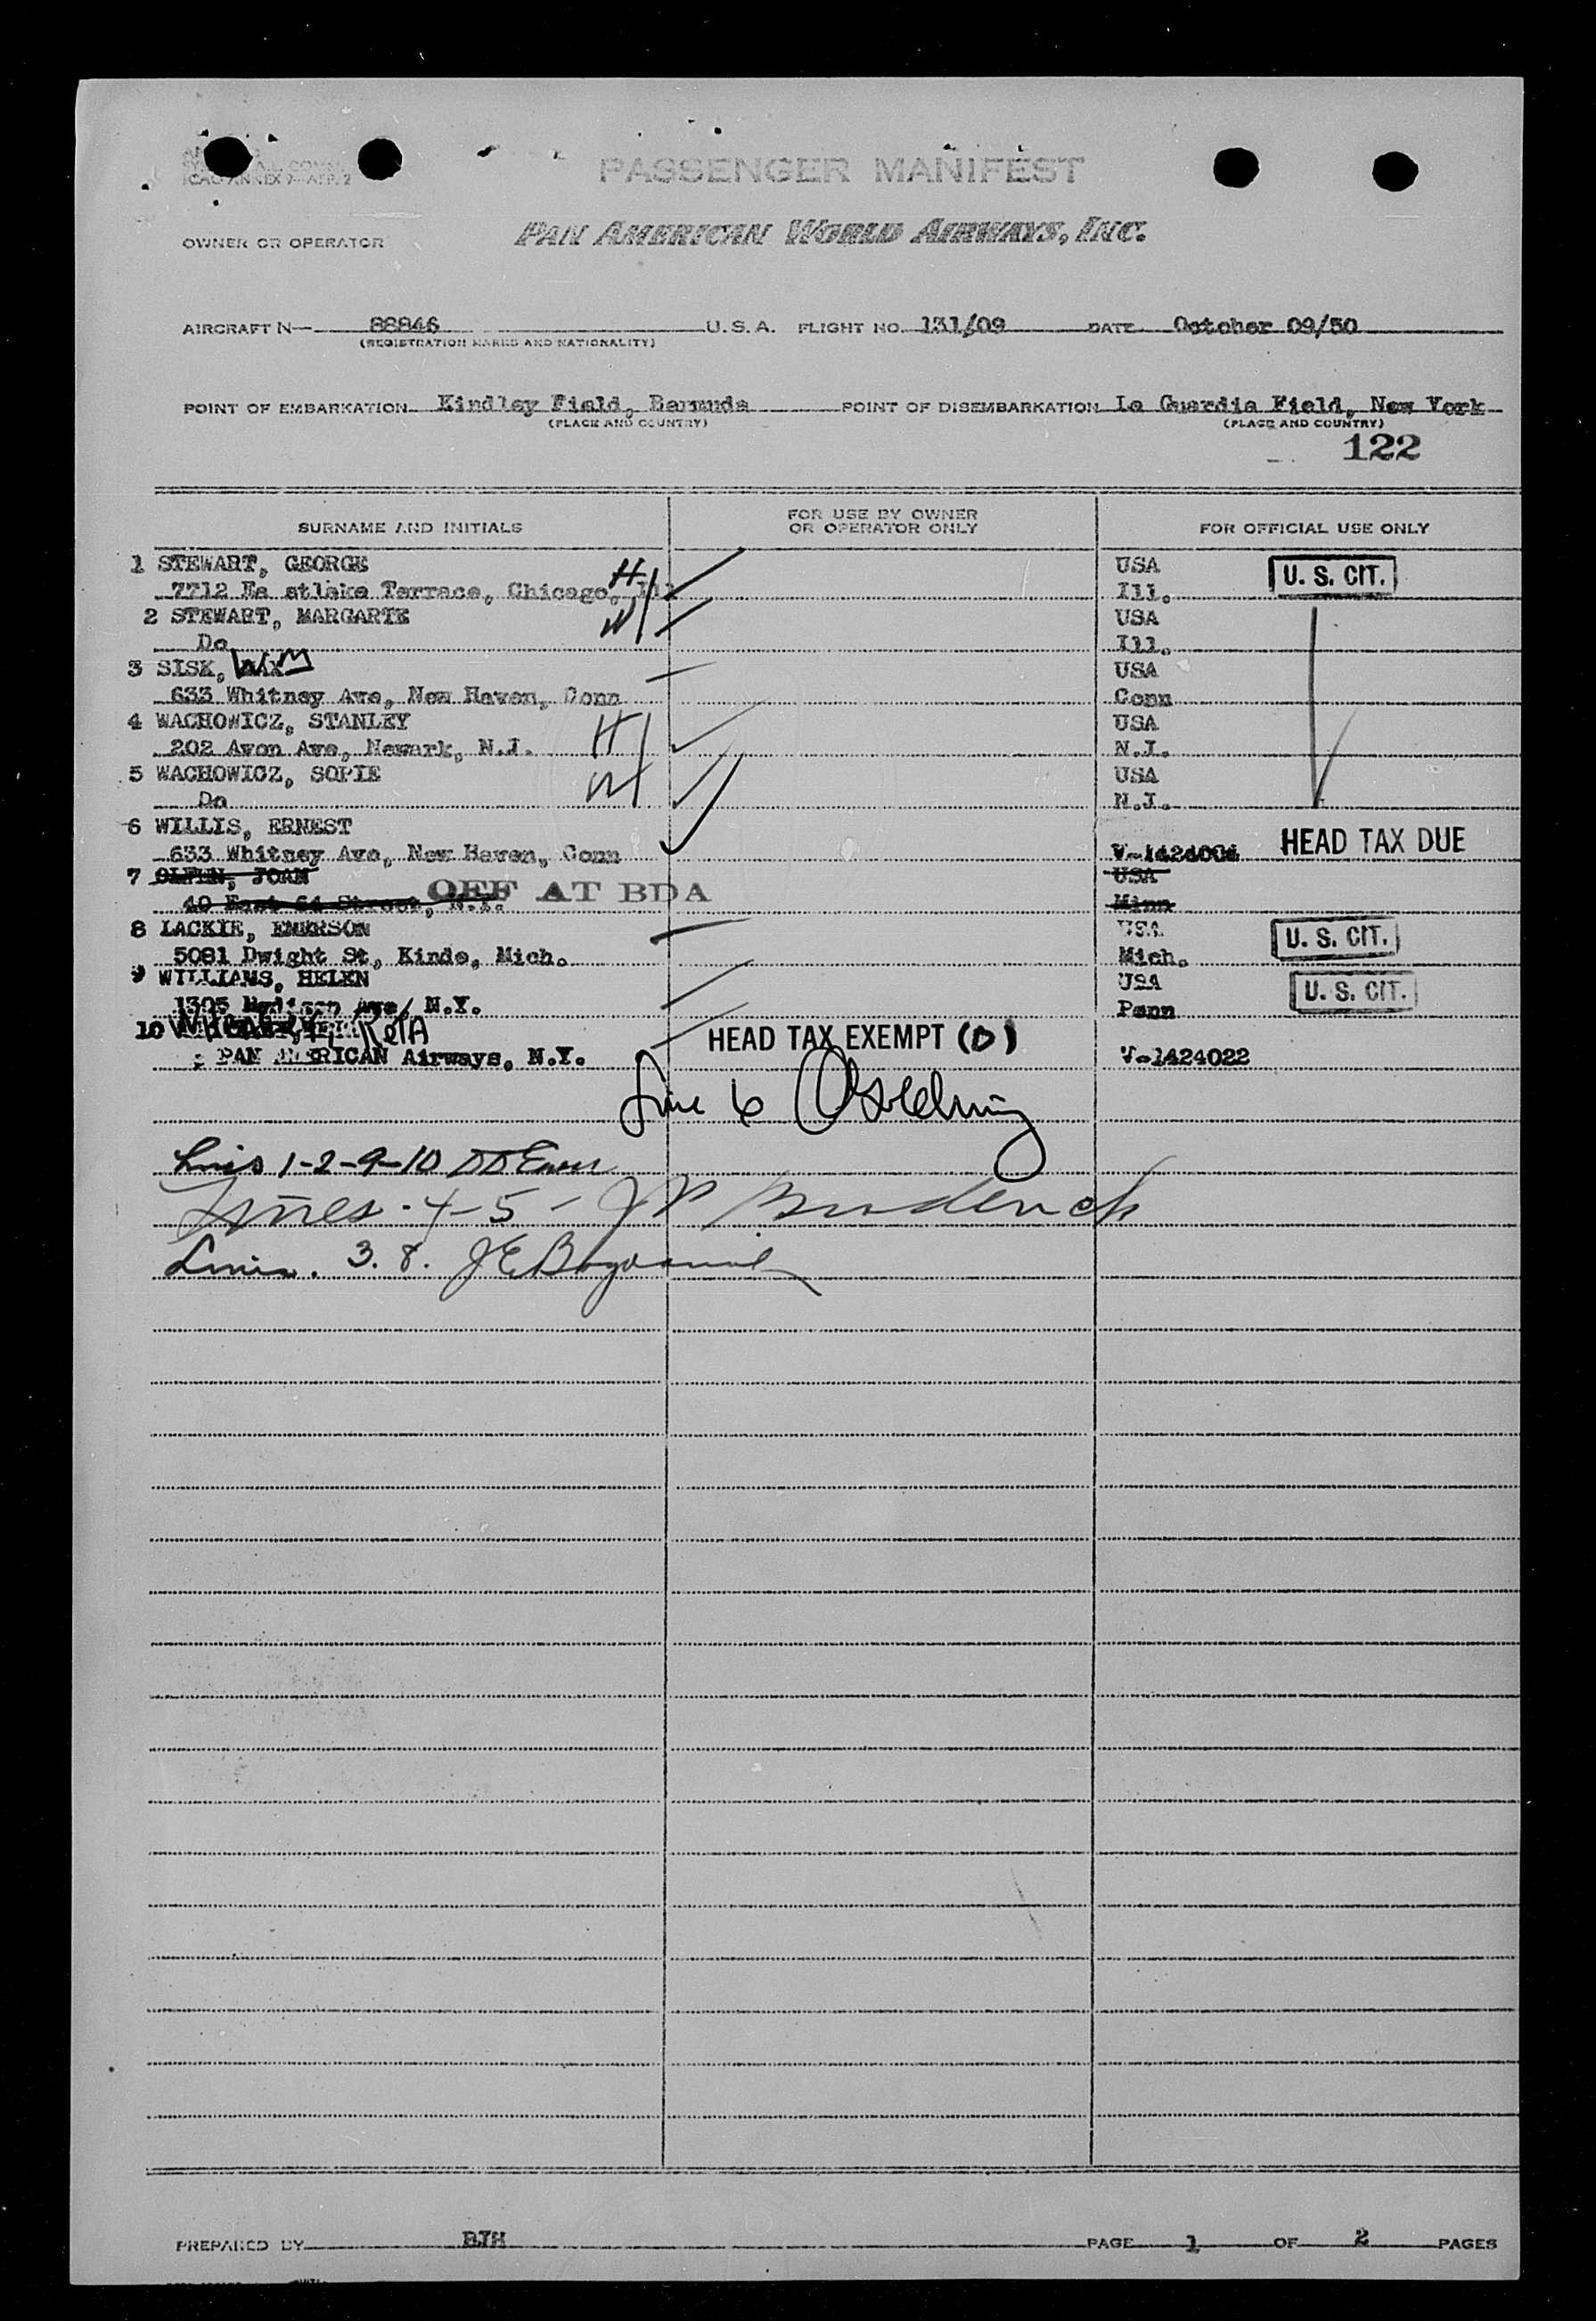 ICAO ANNEX 9—APP. 2
PASSENGER MANIFEST
OWNER OR OPERATOR PAN AMERICAN WORLD AIRWAYS, INC.
AIRCRAFT N— 88846 U. S. A. FLIGHT NO. 131/09 DATE October 09/50
(REGISTRATION MARKS AND NATIONALITY)
POINT OF EMBARKATION Kindley Field, Bermuda POINT OF DISEMBARKATION La Guardia Field, New York
(PLACE AND COUNTRY) (PLACE AND COUNTRY)
122
SURNAME AND INITIALS FOR USE BY OWNER OR OPERATOR ONLY FOR OFFICIAL USE ONLY
1 STEWART, GEORGE H USA U. S. CIT.
7712 Ea stlake Terrace, Chicago, Ill Ill.
2 STEWART, MARGARTE W USA
Do Ill.
3 SISK, WM USA
633 Whitney Ave, New Haven, Conn Conn
4 WACHOWICZ, STANLEY H USA
202 Avon Ave, Newark, N.J. N.J.
5 WACHOWICZ, SOPIE W USA
Do N.J.
6 WILLIS, ERNEST HEAD TAX DUE
633 Whitney Ave, New Haven, Conn V-1424004
7 JOAN USA
40 East 64 Street, N.Y. OFF AT BDA Minn
8 LACKIE, EMERSON USA U. S. CIT.
5081 Dwight St, Kinde, Mich. Mich.
9 WILLIAMS, HELEN USA U. S. CIT.
1305 Madison Ave, N.Y. Penn
10 HEAD TAX EXEMPT (D)
PAN AMERICAN Airways, N.Y. V-1424022
Line 6
Lines 1-2-9-10
Lines - 4-5 -
Lines. 3. 8.
PREPARED BY BJH PAGE 1 OF 2 PAGES